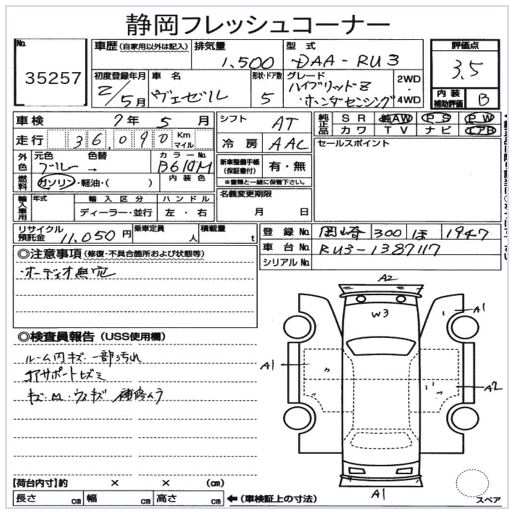 静岡フレッシュコーナー
No.
35257
車歴 (自家用以外は記入)
排気量
1,500
型式
DAA-RU3
評価点
3.5
初度登録年月
2/5月
車名
ヴェゼル
形状・ドア数
5
グレード
ハイブリッドZ
ホンダセンシング
2WD
4WD
内装
補助評価
B
車検 2年 5月
シフト
AT
純正品
SR AW PS PW
カワ TV ナビ エアB
走行 36,090 Km
マイル
冷房
AAC
セールスポイント
外色
元色
ブルー
色替
→
カラーNo.
B610M
新車整備手帳
(保証書付)
有・無
※書類と一緒に保管下さい。
燃料
ガソリン・軽油・( )
内装色
名義変更期限
月 日
輸入車用
年式
輸入区分
ディーラー・並行
ハンドル
左・右
リサイクル
預託金
11,050円
乗車定員
人
積載量
t
登録No.
岡崎 300 ほ 1947
車台No.
RU3-1387117
シリアルNo.
◎注意事項 (修復・不具合箇所および状態等)
・オーディオ無完
◎検査員報告 (USS使用欄)
ルーム内キズ一部汚れ
コアサポートヒズミ
A2
W3
A1
A1
A2
A1
スペア
【荷台内寸】約 × × (cm)
長さ cm 幅 cm 高さ cm
←(車検証上の寸法)